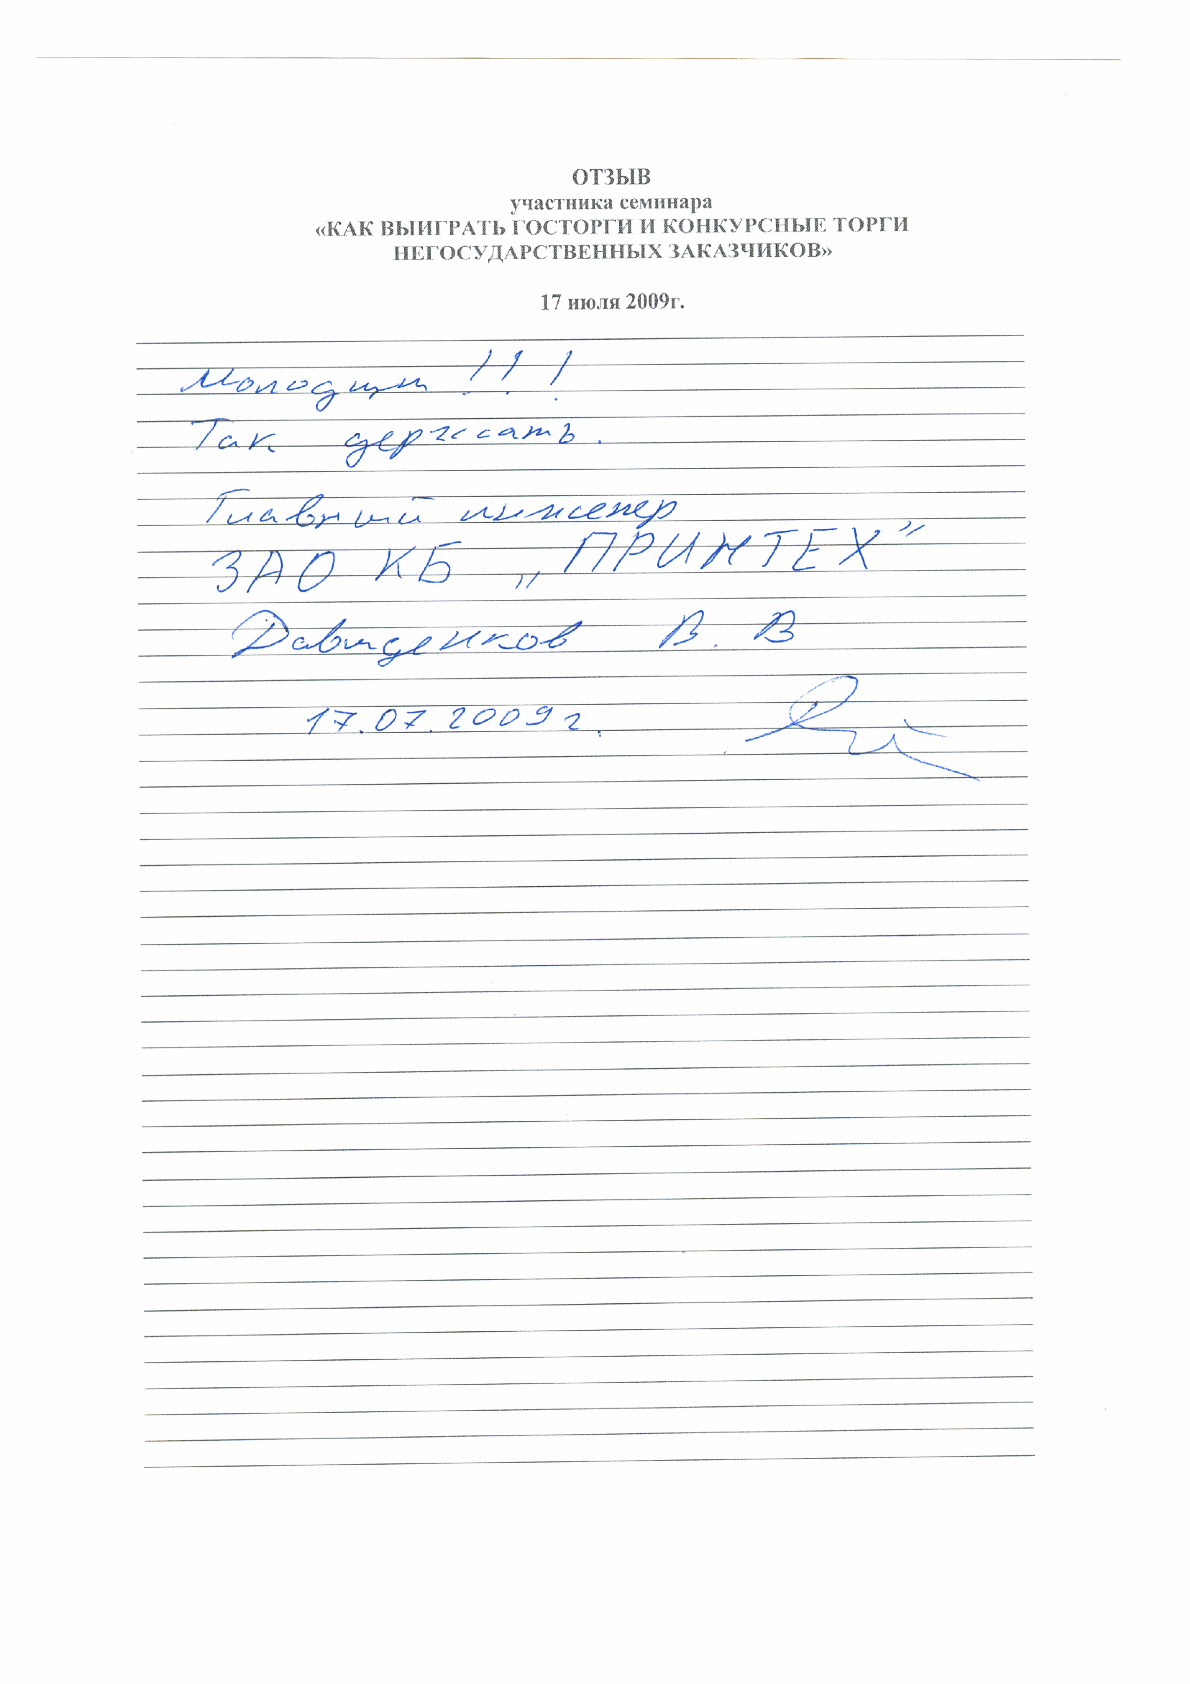 ОТЗЫВ
участника семинара
«КАК ВЫИГРАТЬ ГОСТОРГИ И КОНКУРСНЫЕ ТОРГИ
НЕГОСУДАРСТВЕННЫХ ЗАКАЗЧИКОВ»
17 июля 2009г.
Молодцы !!!
Так держать.
Главный инженер
ЗАО КБ „ПРИНТЕХ”
Давиденков В. В
17.07.2009г.